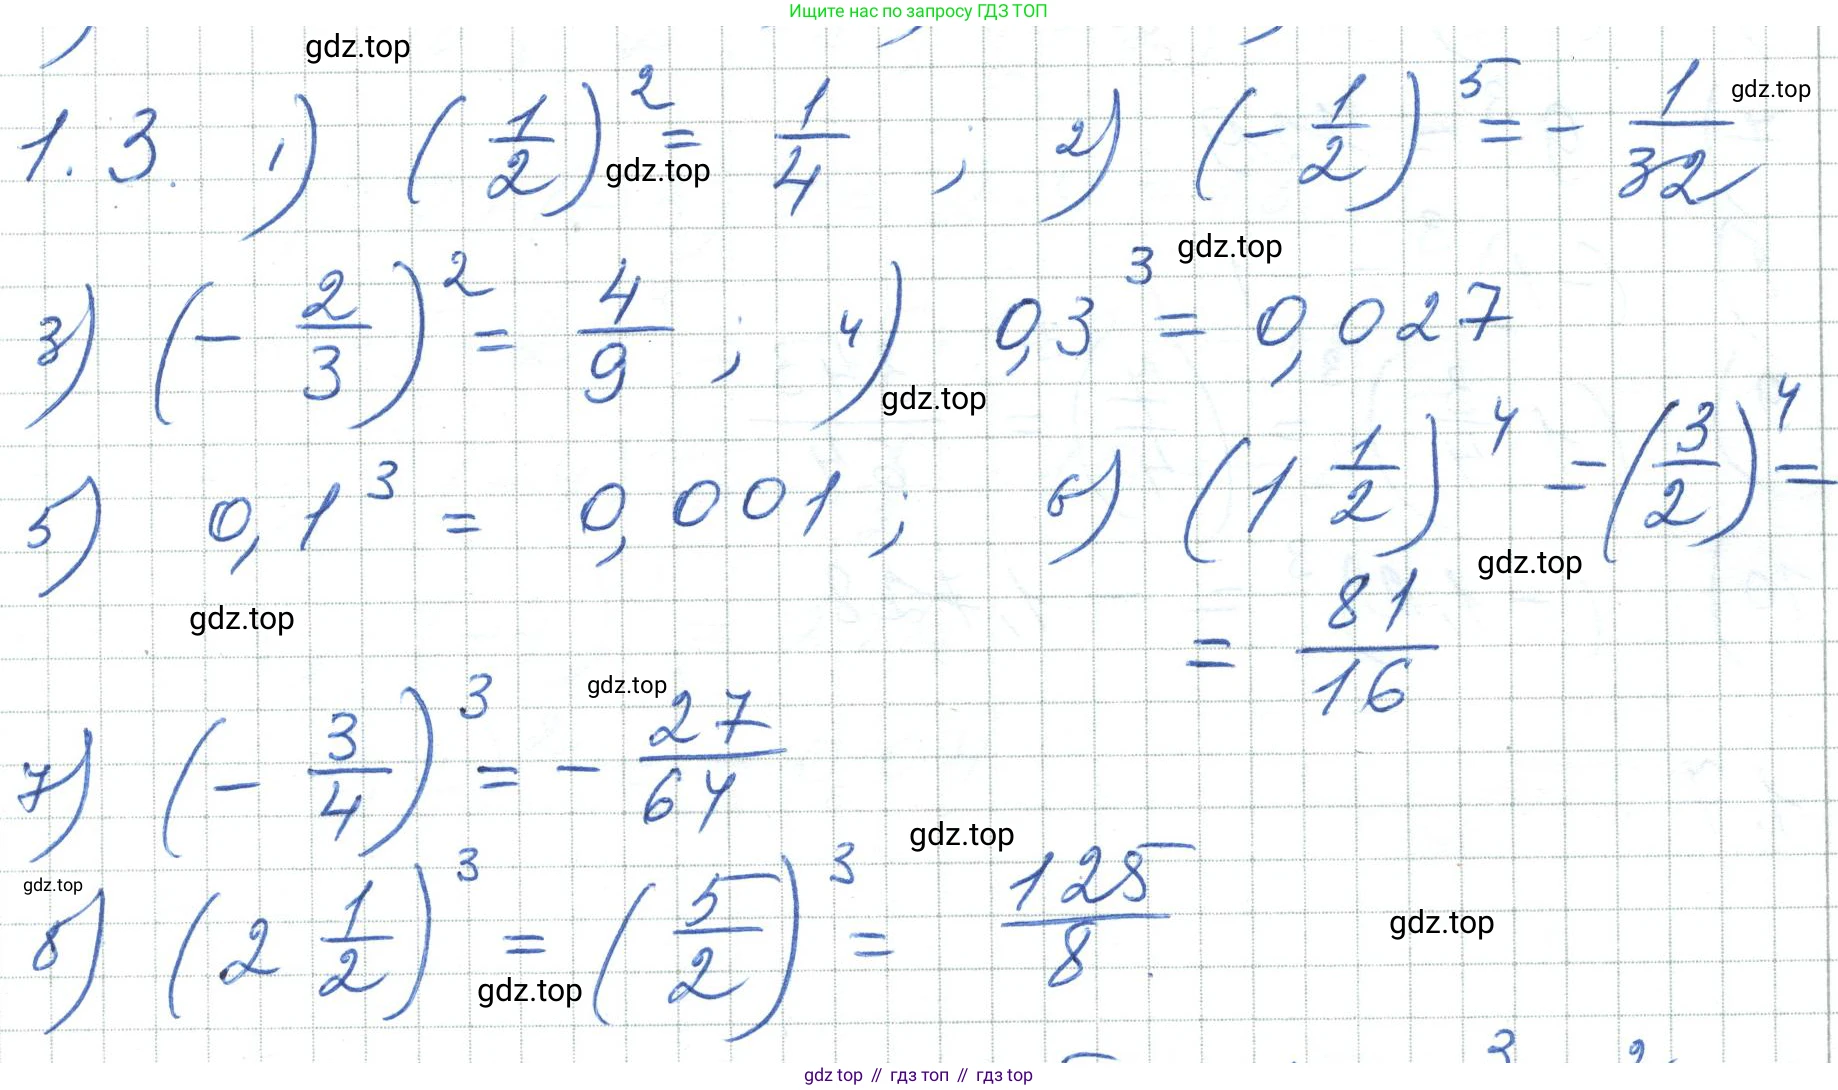 Ищите нас по запросу ГДЗ ТОП
gdz.top
1.3. 1) (1/2)² = 1/4 ; 2) (-1/2)⁵ = - 1/32
gdz.top
gdz.top
gdz.top
3) (-2/3)² = 4/9 ; 4) 0,3³ = 0,027
gdz.top
5) 0,1³ = 0,001 ; 6) (1 1/2)⁴ = (3/2)⁴ =
gdz.top
gdz.top
= 81/16
gdz.top
7) (-3/4)³ = - 27/64
gdz.top
gdz.top
8) (2 1/2)³ = (5/2)³ = 125/8
gdz.top
gdz.top
gdz top // гдз топ // гдз top